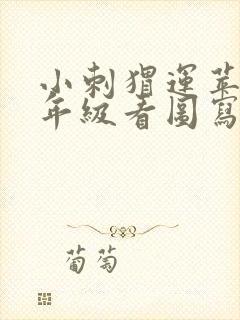 小刺猬運蘋
年級看圖寫
葡萄